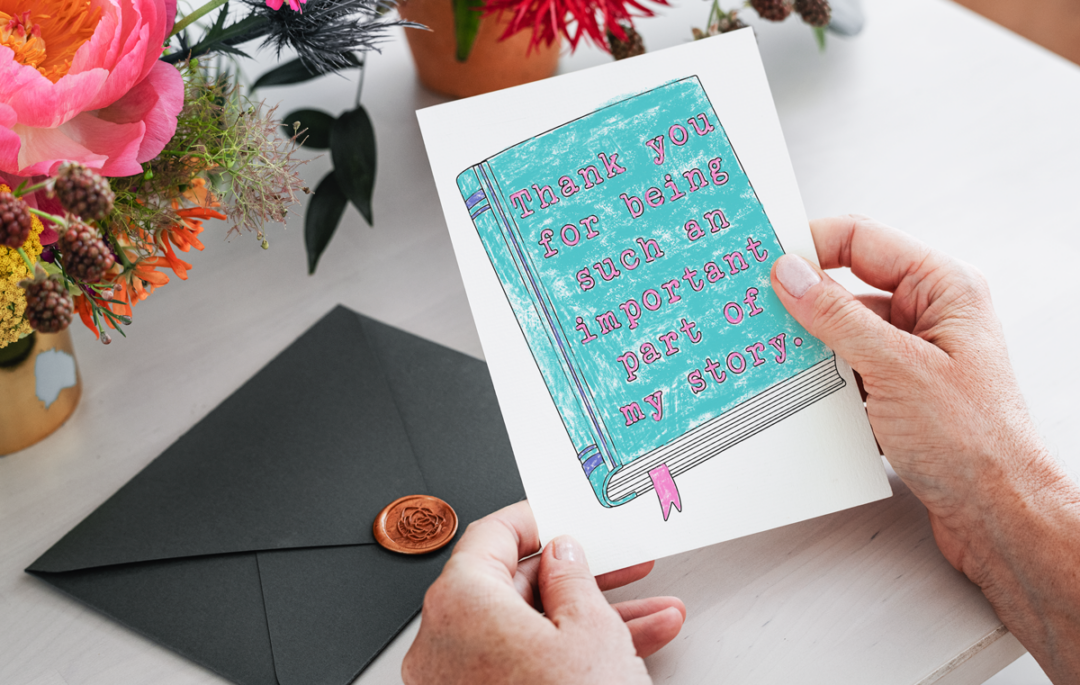 Thank you
for being
such an
important
part of
my story.